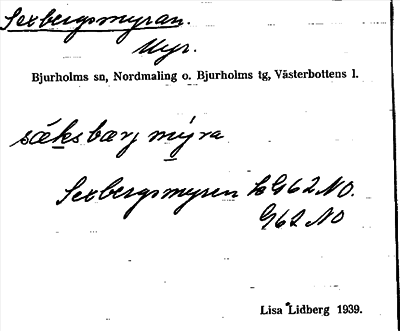 Sexbergsmyran.
Myr.
Bjurholms sn, Nordmaling o. Bjurholms tg, Västerbottens l.
säksbærj mýra
Sexbergsmyren hs G62 NO.
G62 NO
Lisa Lidberg 1939.